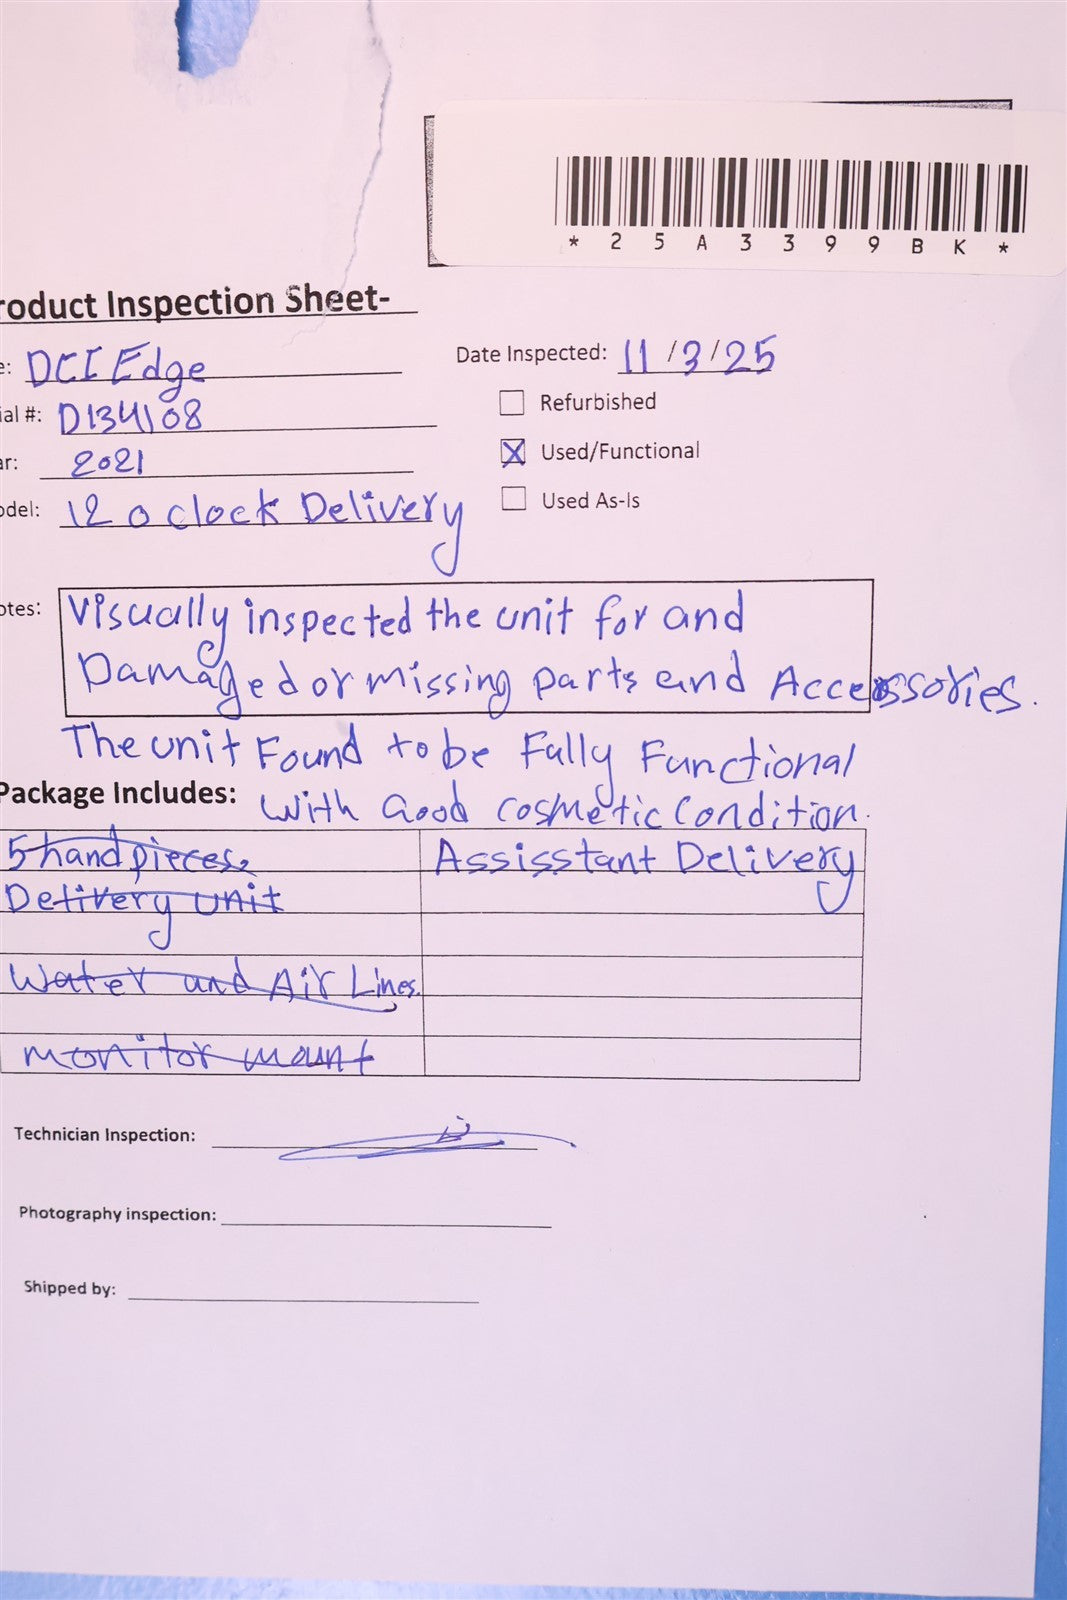 *25A3399BK*
roduct Inspection Sheet-
e: DCI Edge
Date Inspected: 11/3/25
ial #: D134108
Refurbished
ar: 2021
Used/Functional
odel: 12 o clock Delivery
Used As-Is
otes: Visually inspected the unit for and
Damaged or missing parts and Accessories.
The unit Found to be Fully Functional
Package Includes: With Good cosmetic Condition.
5 hand pieces.
Assisstant Delivery
Delivery unit
Water and Air Lines.
monitor mount
Technician Inspection:
Photography inspection:
Shipped by: